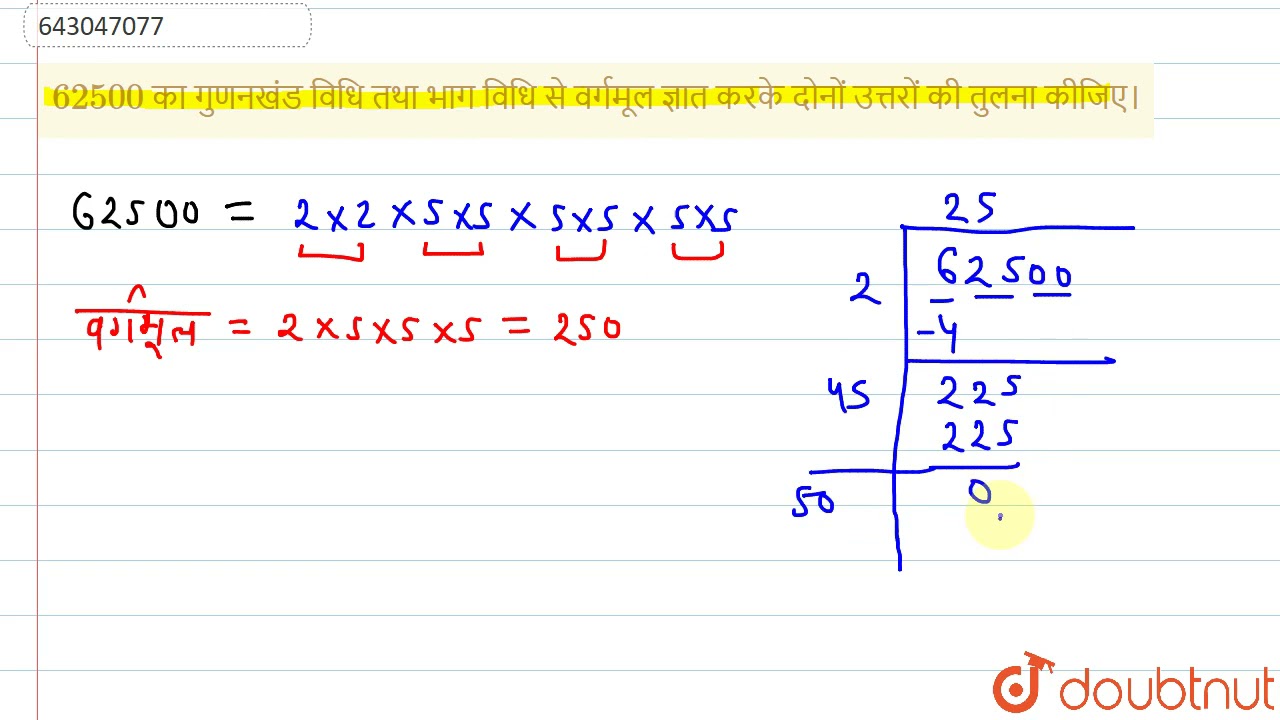 643047077
62500 का गुणनखंड विधि तथा भाग विधि से वर्गमूल ज्ञात करके दोनों उत्तरों की तुलना कीजिए।
62500 = 2 × 2 × 5 × 5 × 5 × 5 × 5 × 5
वर्गमूल = 2 × 5 × 5 × 5 = 250
25
2 62500
-4
45 225
225
50 0
doubtnut